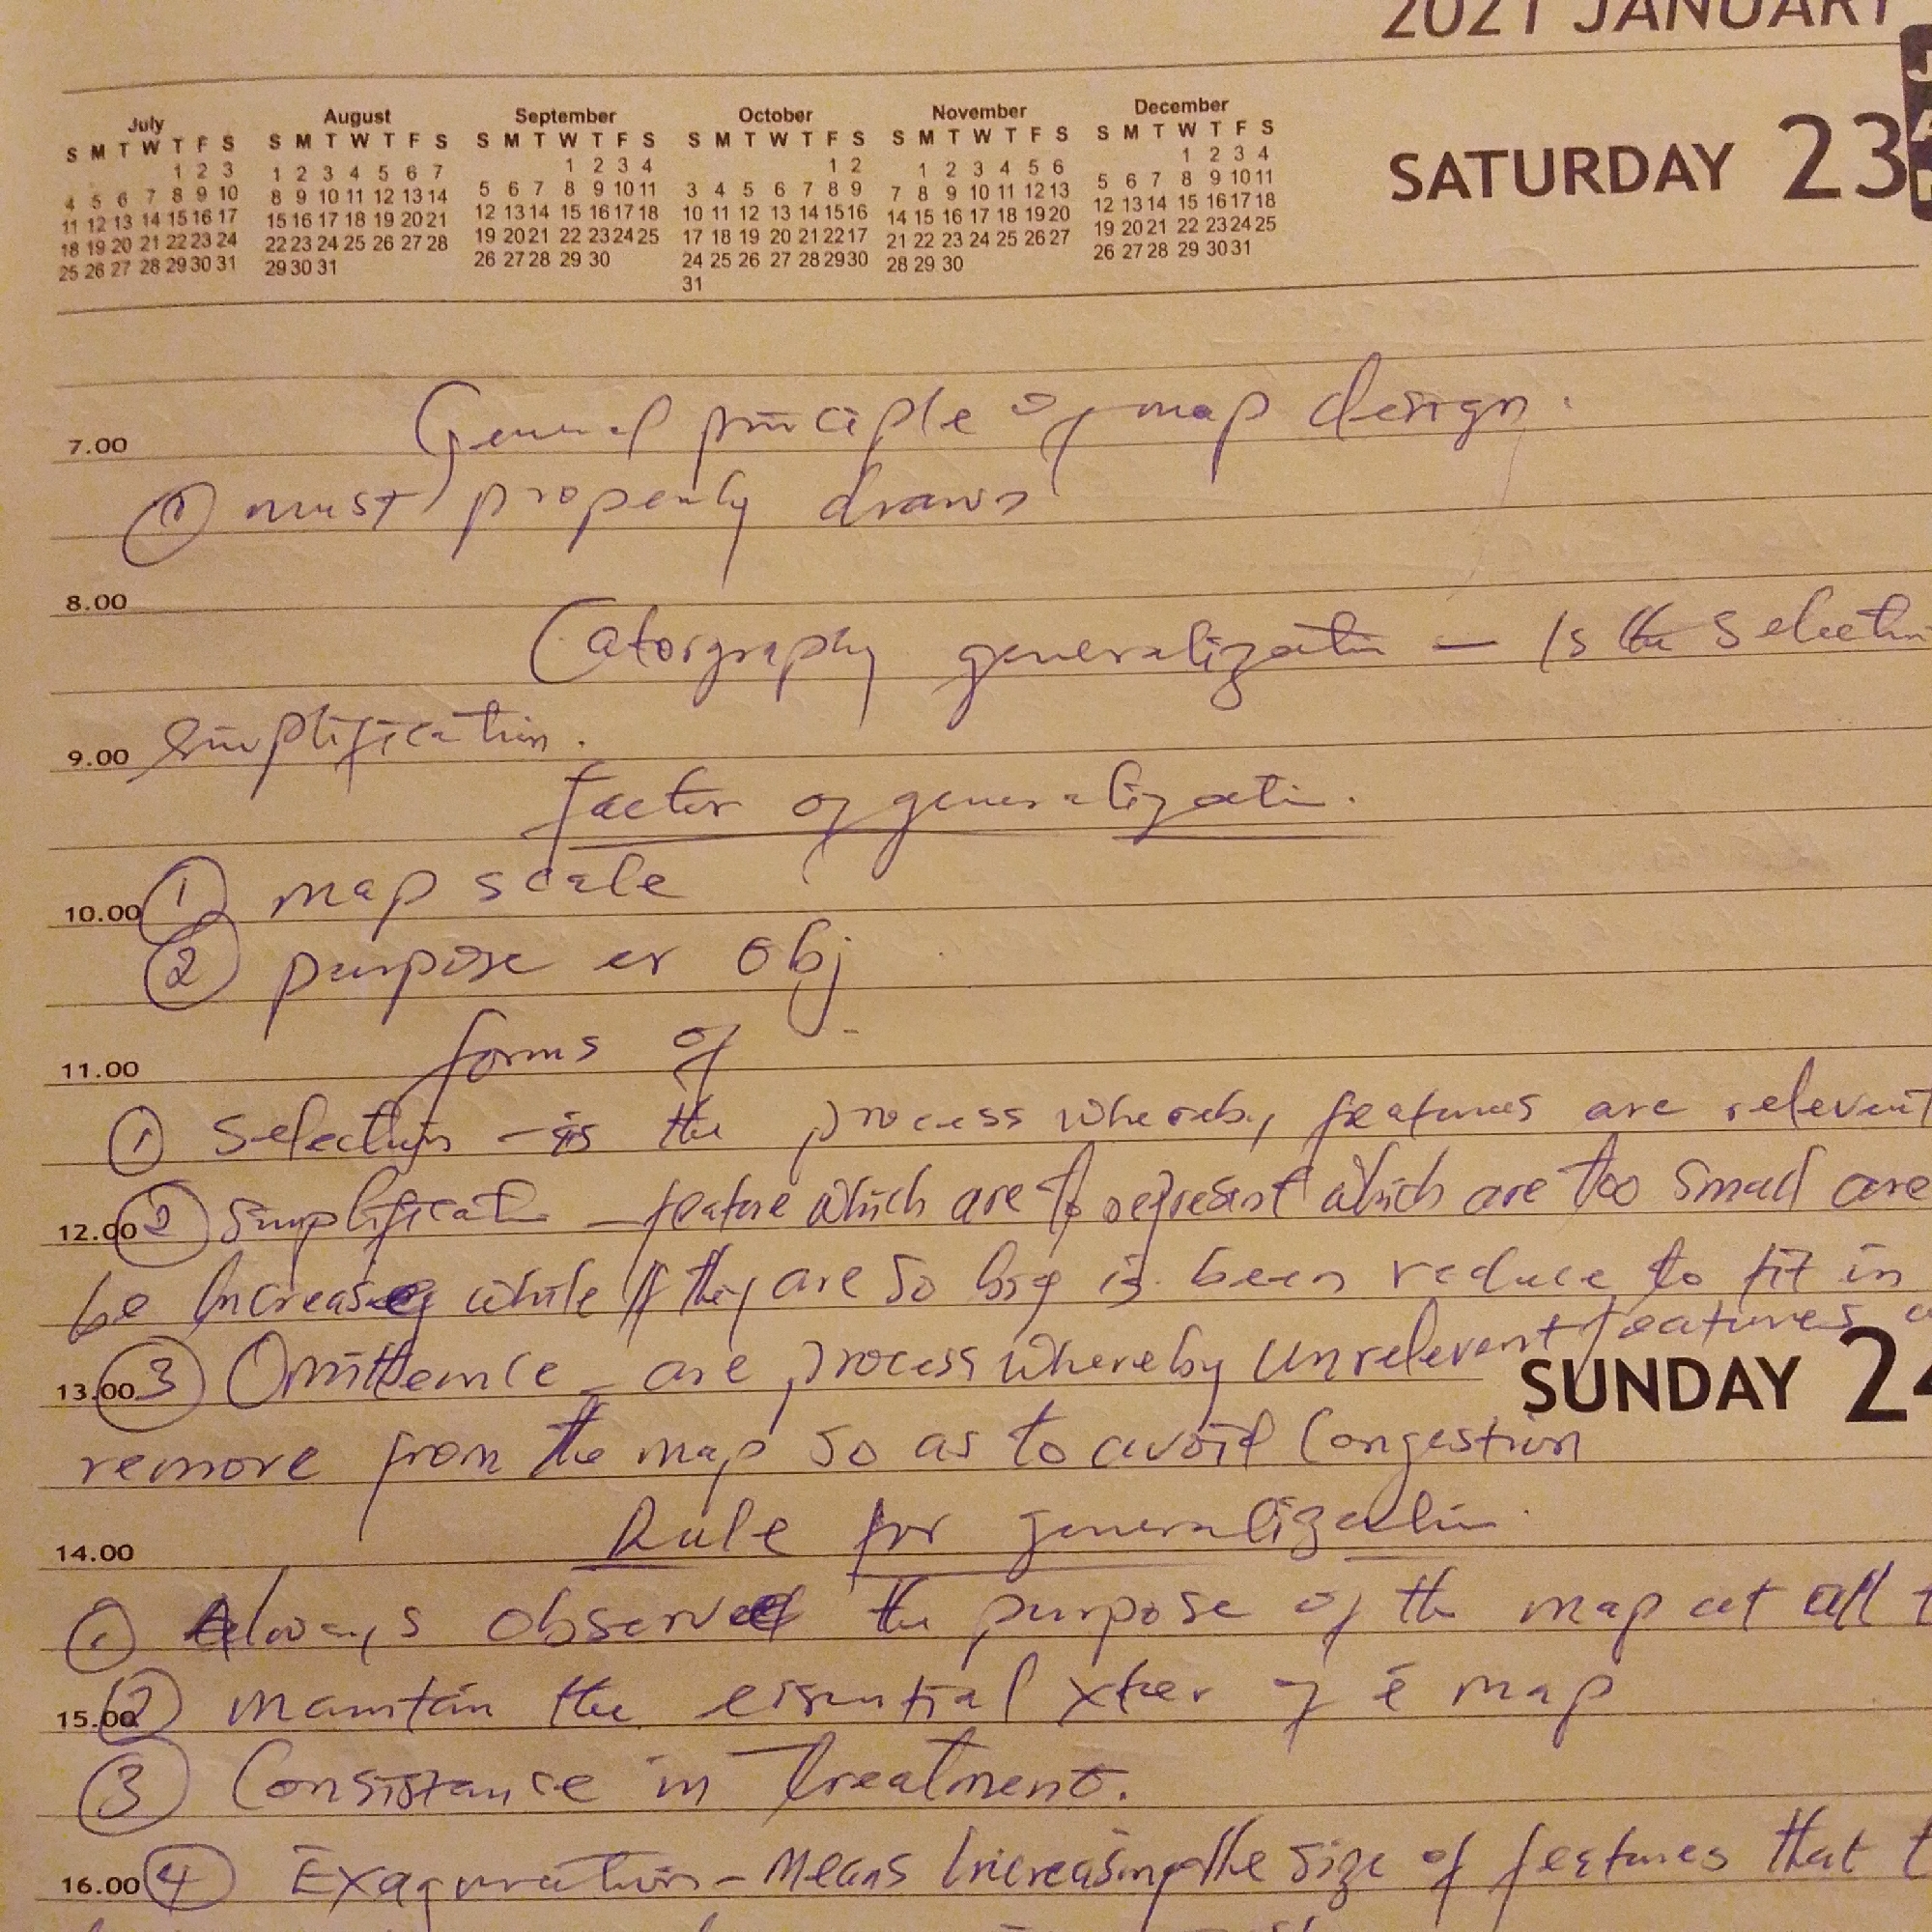 2021 JANUARY
SATURDAY 23
July August September October November December
S M T W T F S S M T W T F S S M T W T F S S M T W T F S S M T W T F S S M T W T F S
1 2 3 1 2 3 4 5 6 7 1 2 3 4 1 2 1 2 3 4 5 6 1 2 3 4
4 5 6 7 8 9 10 8 9 10 11 12 13 14 5 6 7 8 9 10 11 3 4 5 6 7 8 9 7 8 9 10 11 12 13 5 6 7 8 9 10 11
11 12 13 14 15 16 17 15 16 17 18 19 20 21 12 13 14 15 16 17 18 10 11 12 13 14 15 16 14 15 16 17 18 19 20 12 13 14 15 16 17 18
18 19 20 21 22 23 24 22 23 24 25 26 27 28 19 20 21 22 23 24 25 17 18 19 20 21 22 17 21 22 23 24 25 26 27 19 20 21 22 23 24 25
25 26 27 28 29 30 31 29 30 31 26 27 28 29 30 24 25 26 27 28 29 30 28 29 30 26 27 28 29 30 31
31
General principle of map design.
7.00
① must properly drawn
8.00
Catorgraphy generalization — Is the selection
9.00 simplification.
factor of generalization.
10.00 ① map scale
② purpose or obj
11.00 forms of
① Selection - is the process whereby features are relevent
12.00 ② Simplificati — feature which are to represent which are too small are
be Increase while if they are so big is been reduce to fit in
13.00 ③ Omittence - are process whereby unrelevent features
SUNDAY 24
remove from the map so as to avoid Congestion
14.00 Rule for generalization
① Always observe the purpose of the map at all
15.00 ② maintain the essential xter of e map
③ Consistance in treatment.
16.00 ④ Exagguration - means Increasing the size of features that